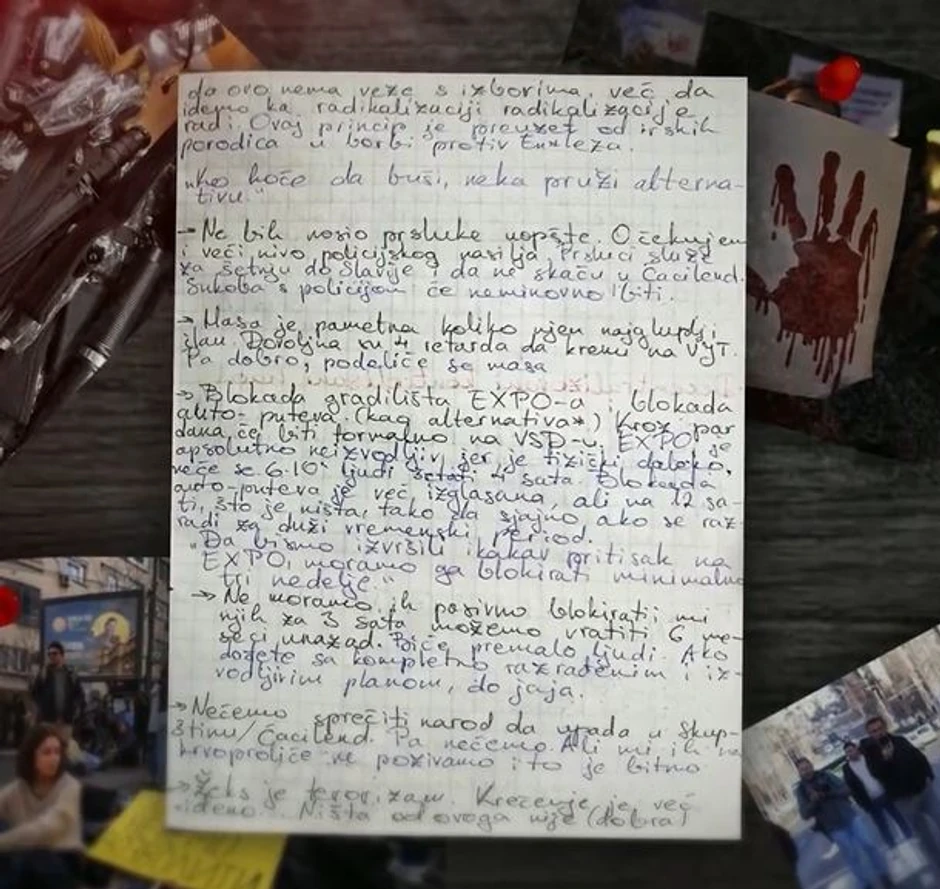 da ovo nema veze s izborima, već da
idemo ka radikalizaciji radikalizacije
radi. Ovaj princip je preuzet od irskih
porodica u borbi protiv Engleza.
"Ko hoće da buši, neka pruži alterna-
tivu."
→ Ne bih nosio prsluke uopšte. Očekujem
i veći nivo policijskog nasilja. Prsluci služe
za šetnju do Slavije i da ne skaču u Ćacilend.
Sukoba s policijom će neminovno biti.
→ Masa je pametna koliko njen najgluplji
član. Dovoljna su 4 retarda da krenu na VJT.
Pa dobro, podeliće se masa
→ Blokada gradilišta EXPO-a i blokada
auto-puteva. (kao alternativa*) Kroz par
dana će biti formalno na VSD-u. EXPO je
apsolutno neizvodljiv jer je fizički daleko,
neće se 6.10⁵ ljudi šetati 4 sata. Blokada
auto-puteva je već izglasana, ali na 12 sa-
ti, što je ništa, tako da sjajno, ako se raz-
radi za duži vremenski period.
"Da bismo izvršili ikakav pritisak na
EXPO, moramo ga blokirati minimalno
tri nedelje."
→ Ne moramo ih pasivno blokirati; mi
njih za 3 sata možemo vratiti 6 me-
seci unazad. Biće premalo ljudi. Ako
dođete sa kompletno razrađenim i iz-
vodljivim planom, do jaja.
→ Nećemo sprečiti narod da upada u Skup-
štinu/Ćacilend. Pa nećemo. Ali mi ih na
krvoproliće ne pozivamo i to je bitno
→ Zeks je terorizam. Krečenje je već
viđeno. Ništa od ovoga nije (dobra)